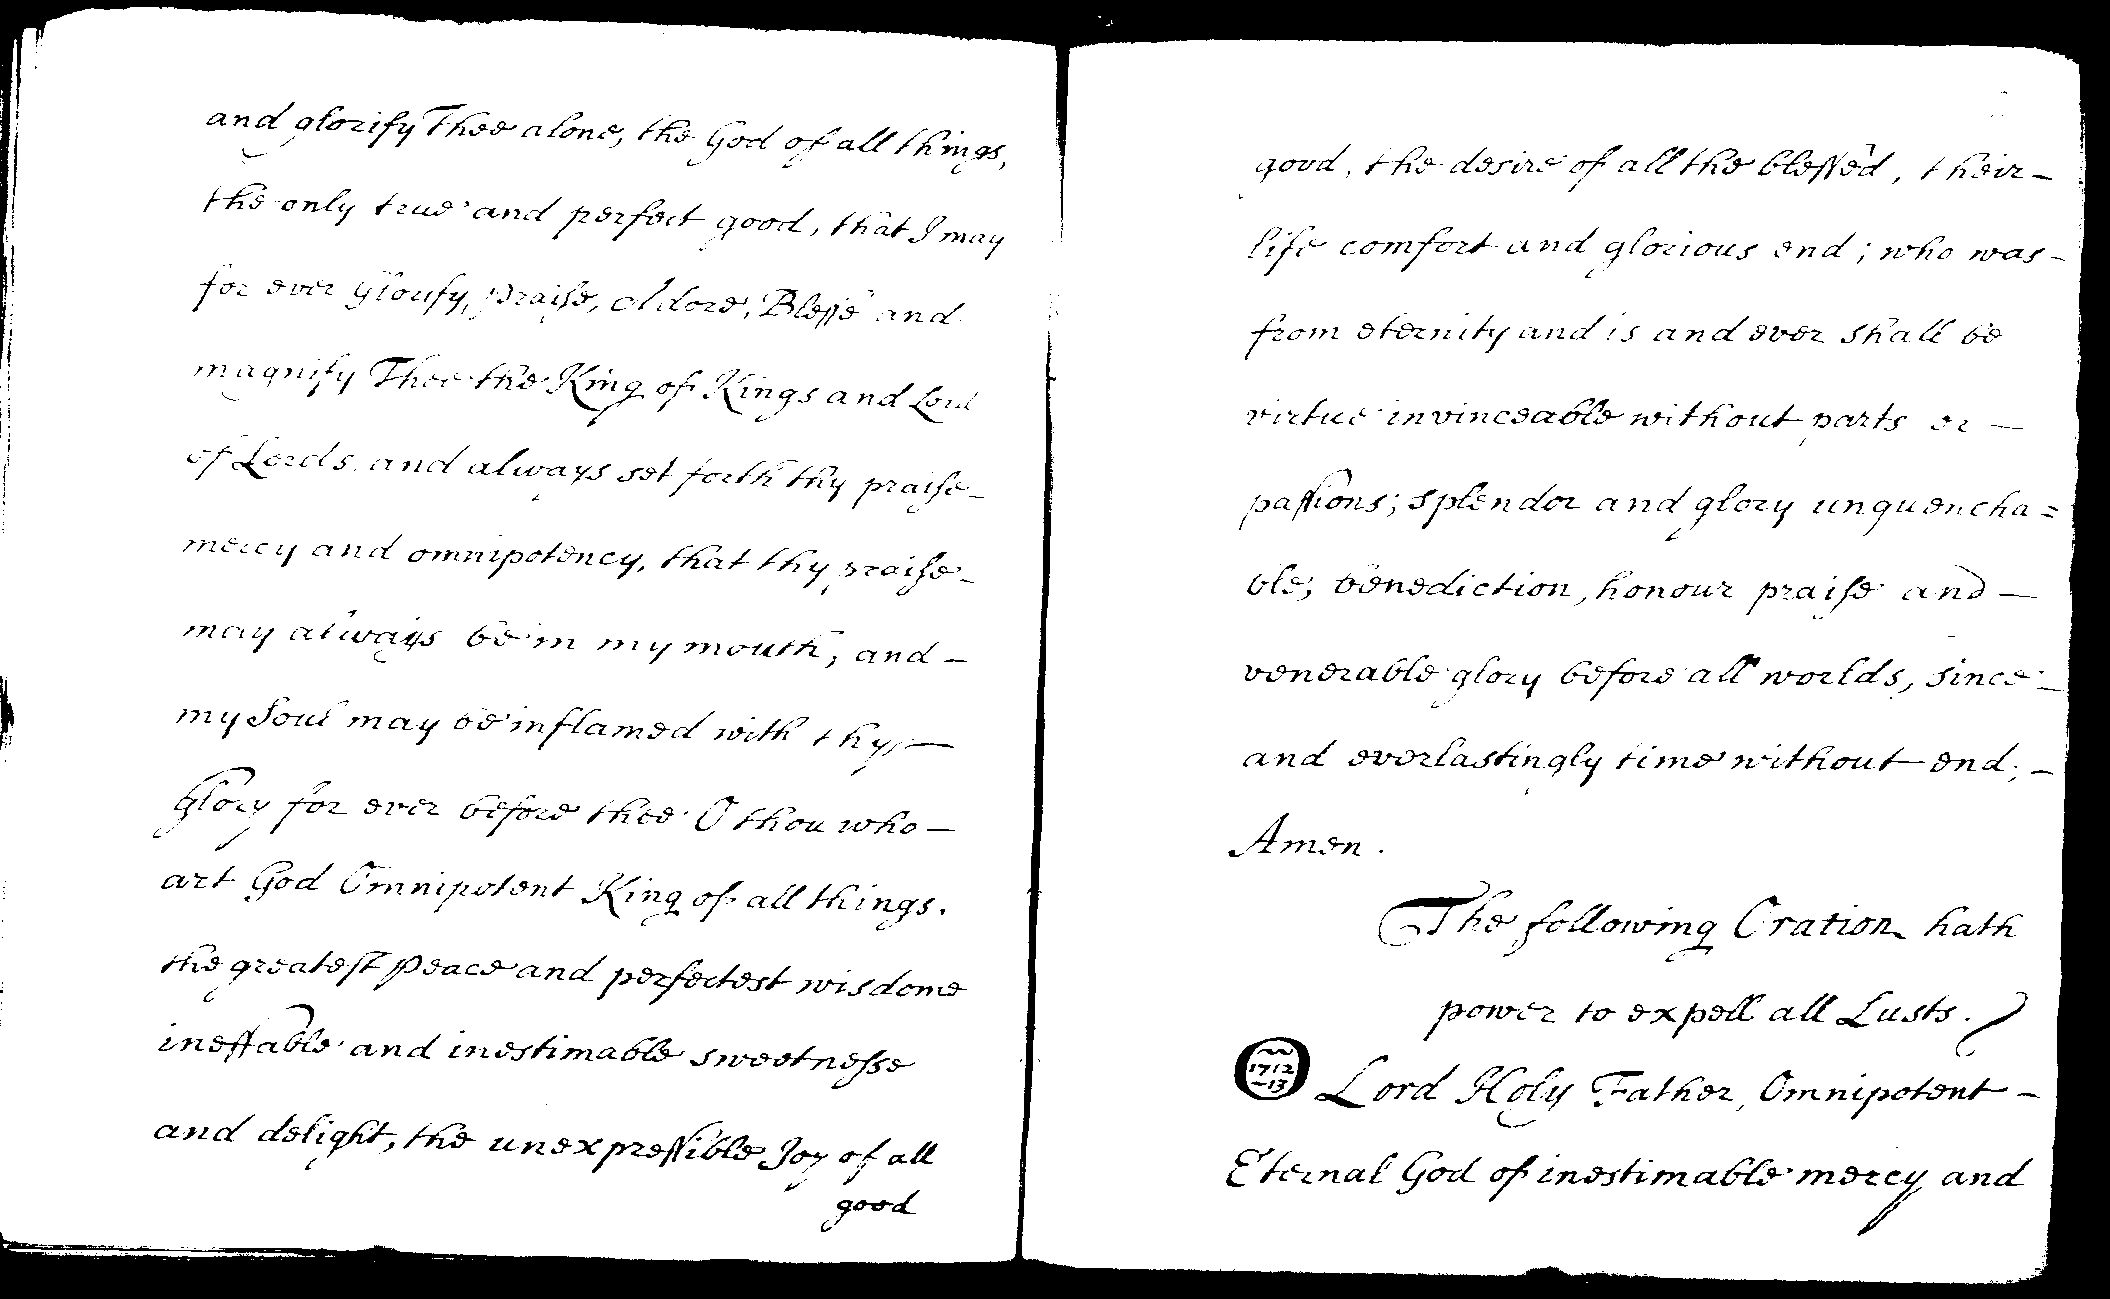 and glorify Thee alone, the God of all things,
the only true and perfect good, that I may
for ever glorify, praise, Adore, Blesse and
magnify Thee the King of Kings and Lord
of Lords, and always set forth thy praise –
mercy and omnipotency, that thy praise –
may always be in my mouth, and –
my Soul may be inflamed with thy –
Glory for ever before thee O thou who –
art God Omnipotent King of all things,
the greatest peace and perfectest wisdome
ineffable and inestimable sweetnesse
and delight, the unexpressible Joy of all
good
good, the desire of all the blessed, their –
life comfort and glorious end; who was –
from eternity and is and ever shall be
virtue invinceable without parts or –
passions; splendor and glory unquencha=
ble; benediction, honour praise and –
venerable glory before all worlds, since –
and everlastingly time without end; –
Amen.
The following Oration hath
power to expell all Lusts.
O 1712 –13 Lord Holy Father, Omnipotent –
Eternal God of inestimable mercy and